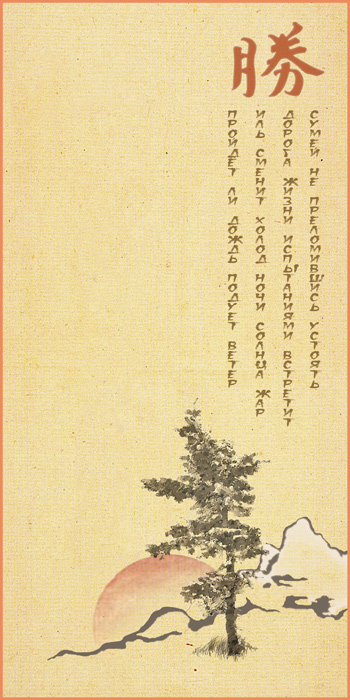 勝
ПРОЙДЁТ ЛИ ДОЖДЬ ПОДУЕТ ВЕТЕР
ИЛЬ СМЕНИТ ХОЛОД НОЧИ СОЛНЦА ЖАР
ДОРОГА ЖИЗНИ ИСПЫТАНИЯМИ ВСТРЕТИТ
СУМЕЙ НЕ ПРЕЛОМИВШИСЬ УСТОЯТЬ